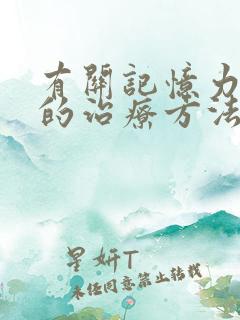 有關記憶力
的治療方法
星妍T
未经同意禁止转载